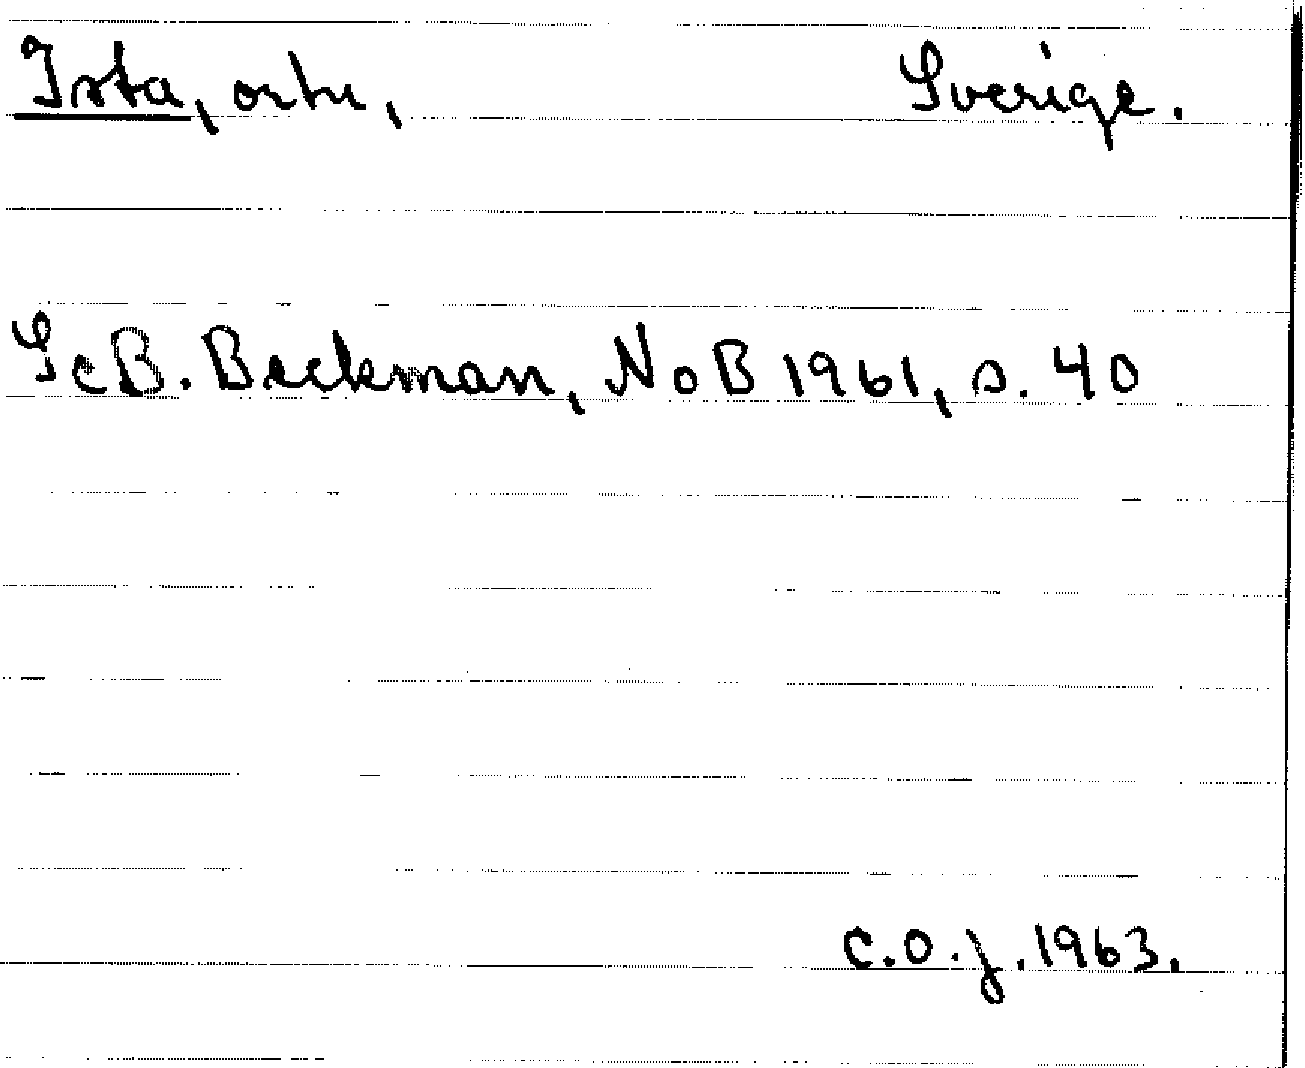 Ista, ortn, Sverige.
Se B. Beckman, NoB 1961, s. 40
C.O.J. 1963.